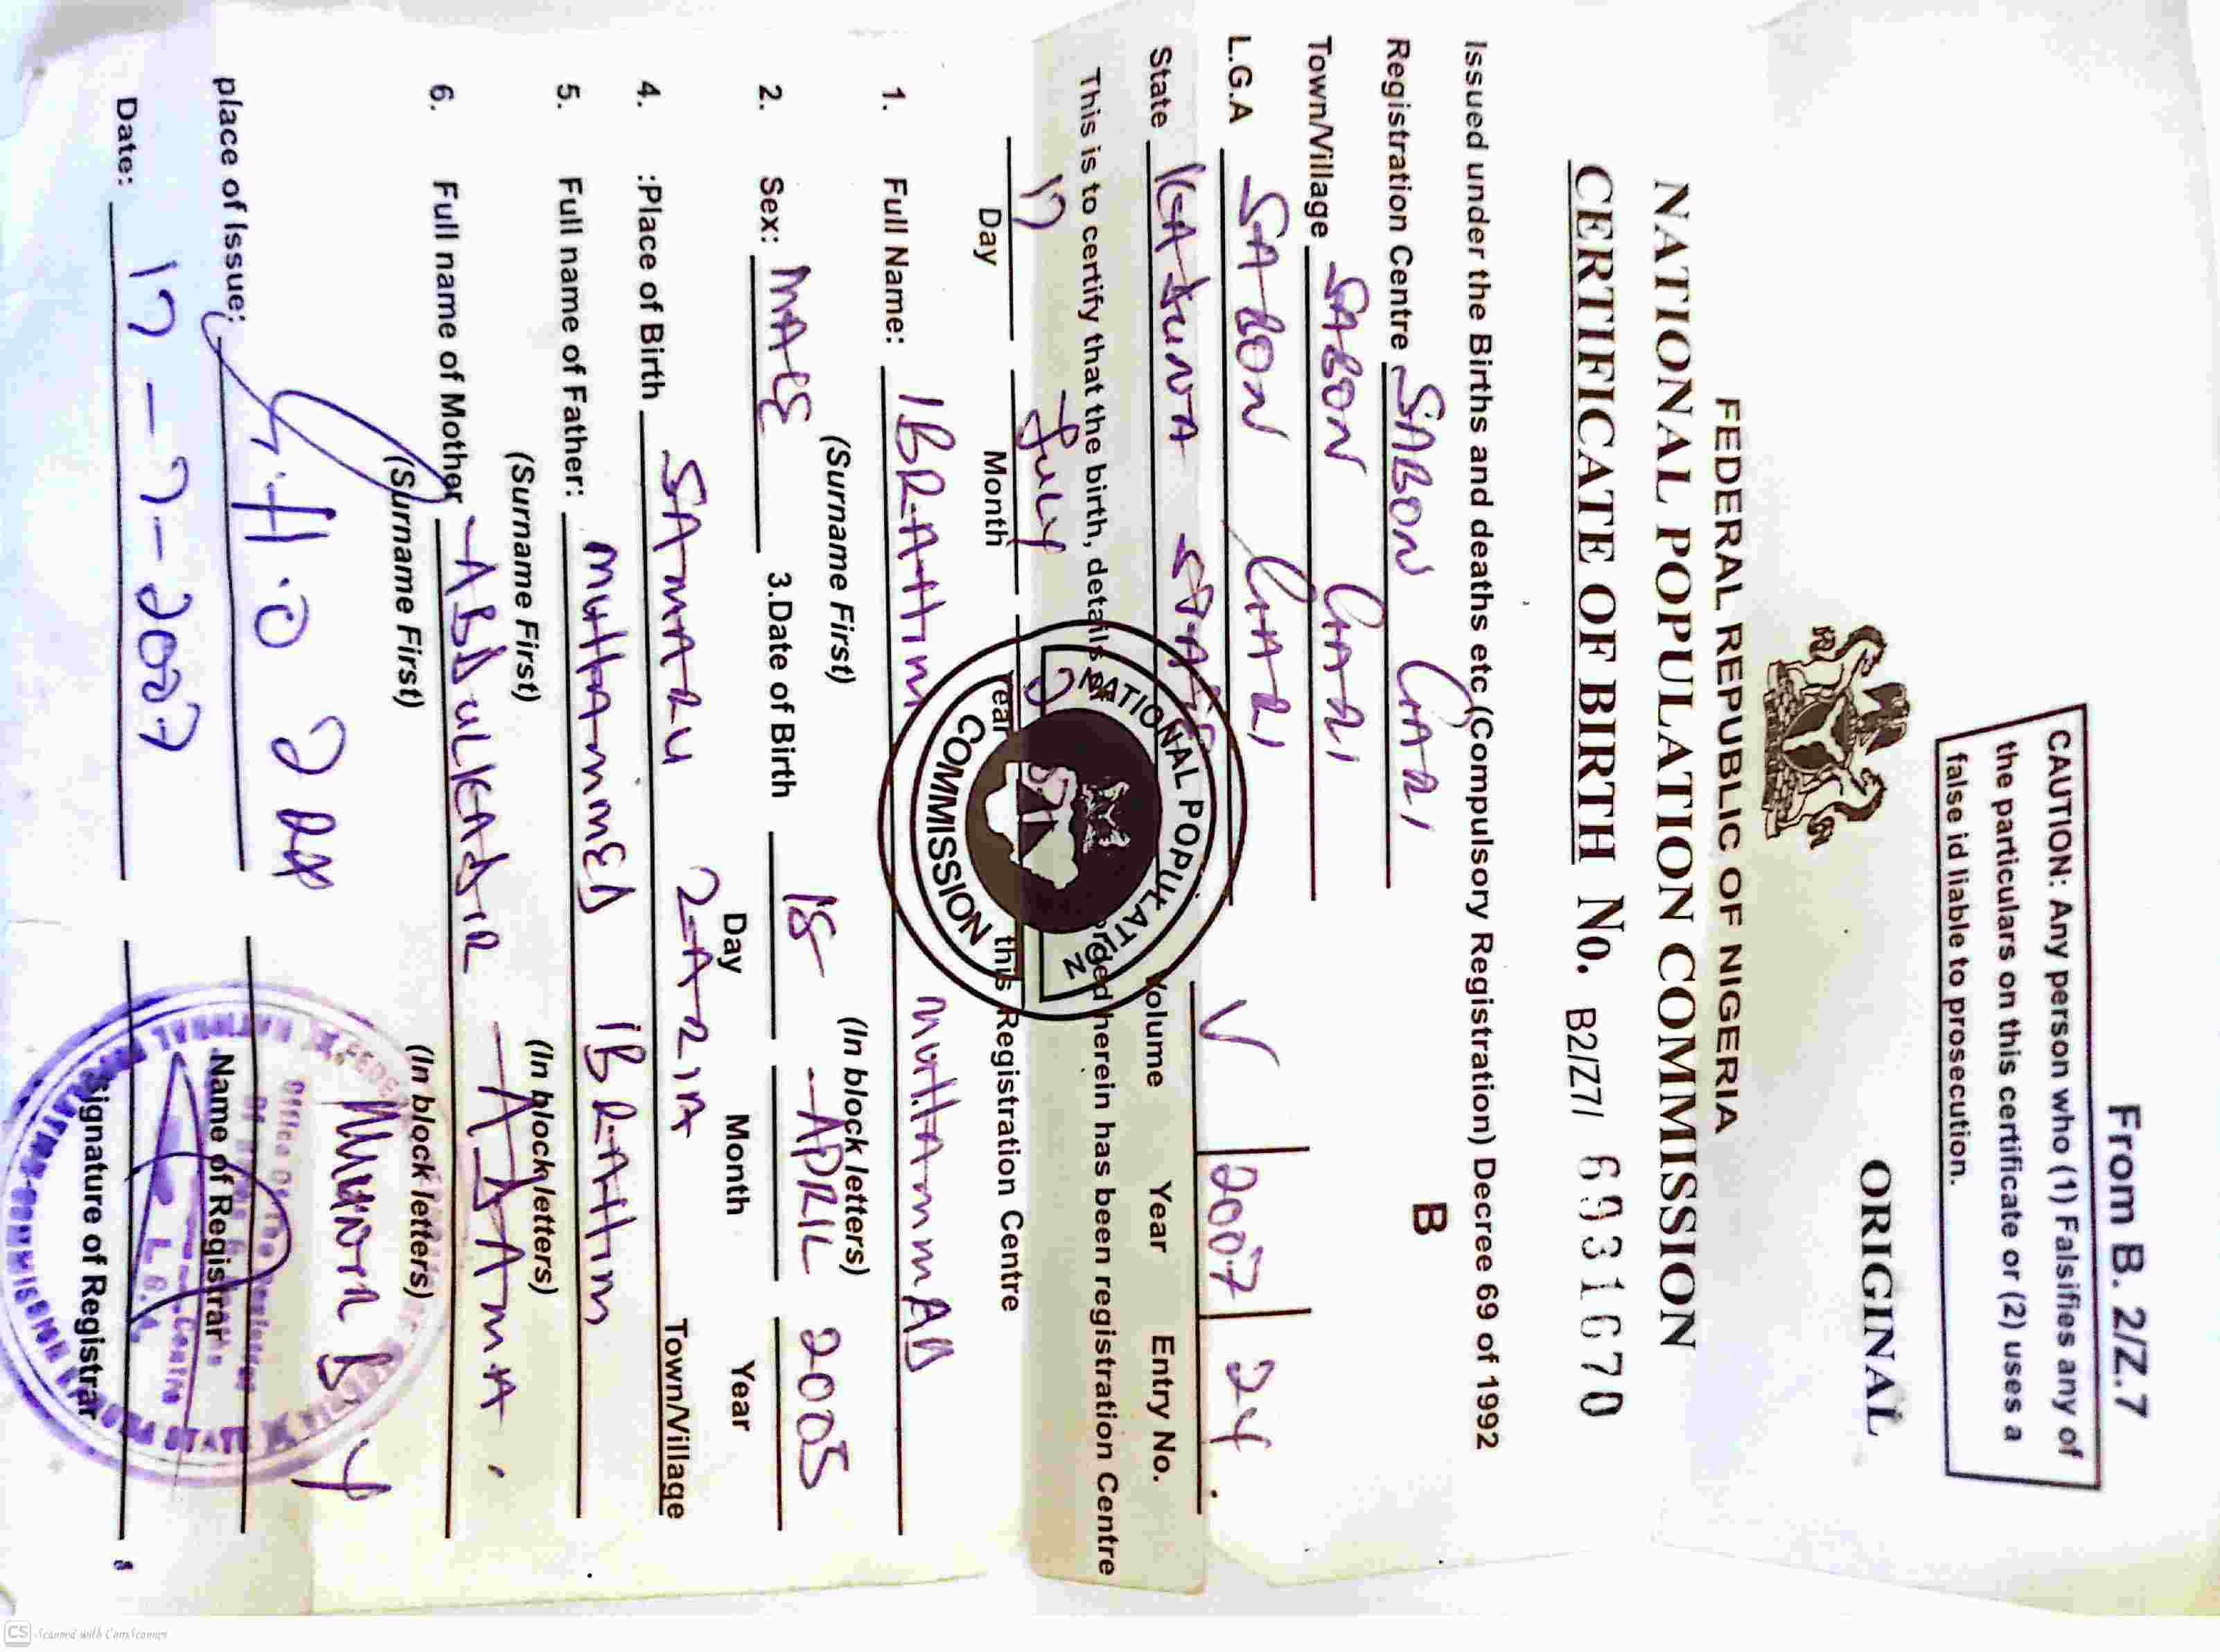 From B. 2/Z.7
CAUTION: Any person who (1) Falsifies any of
the particulars on this certificate or (2) uses a
false id liable to prosecution.
ORIGINAL
FEDERAL REPUBLIC OF NIGERIA
NATIONAL POPULATION COMMISSION
CERTIFICATE OF BIRTH No. B2/Z7/
Issued under the Births and deaths etc (Compulsory Registration) Decree 69 of 1992
B
Registration Centre SABON GARI
Town/Village SABON GARI
L.G.A SABON GARI
V 2007 24
State KADUNA Volume Year Entry No.
This is to certify that the birth, details herein has been registration Centre
17 July
Day Month Year this Registration Centre
NATIONAL POPULATION
COMMISSION
1. Full Name: IBRAHIM MUHAMMAD
(Surname First) (In block letters)
2. Sex: MALE 3.Date of Birth APRIL 2005
Day Month Year
4. :Place of Birth SAMARU ZARIA Town/Village
5. Full name of Father: MUHAMMED IBRAHIM
(Surname First) (In block letters)
6. Full name of Mother ABDULKADIR
(Surname First) (In block letters)
place of Issue: Name of Registrar
Date: 17-7-2007 Signature of Registrar
CS Scanned with CamScanner